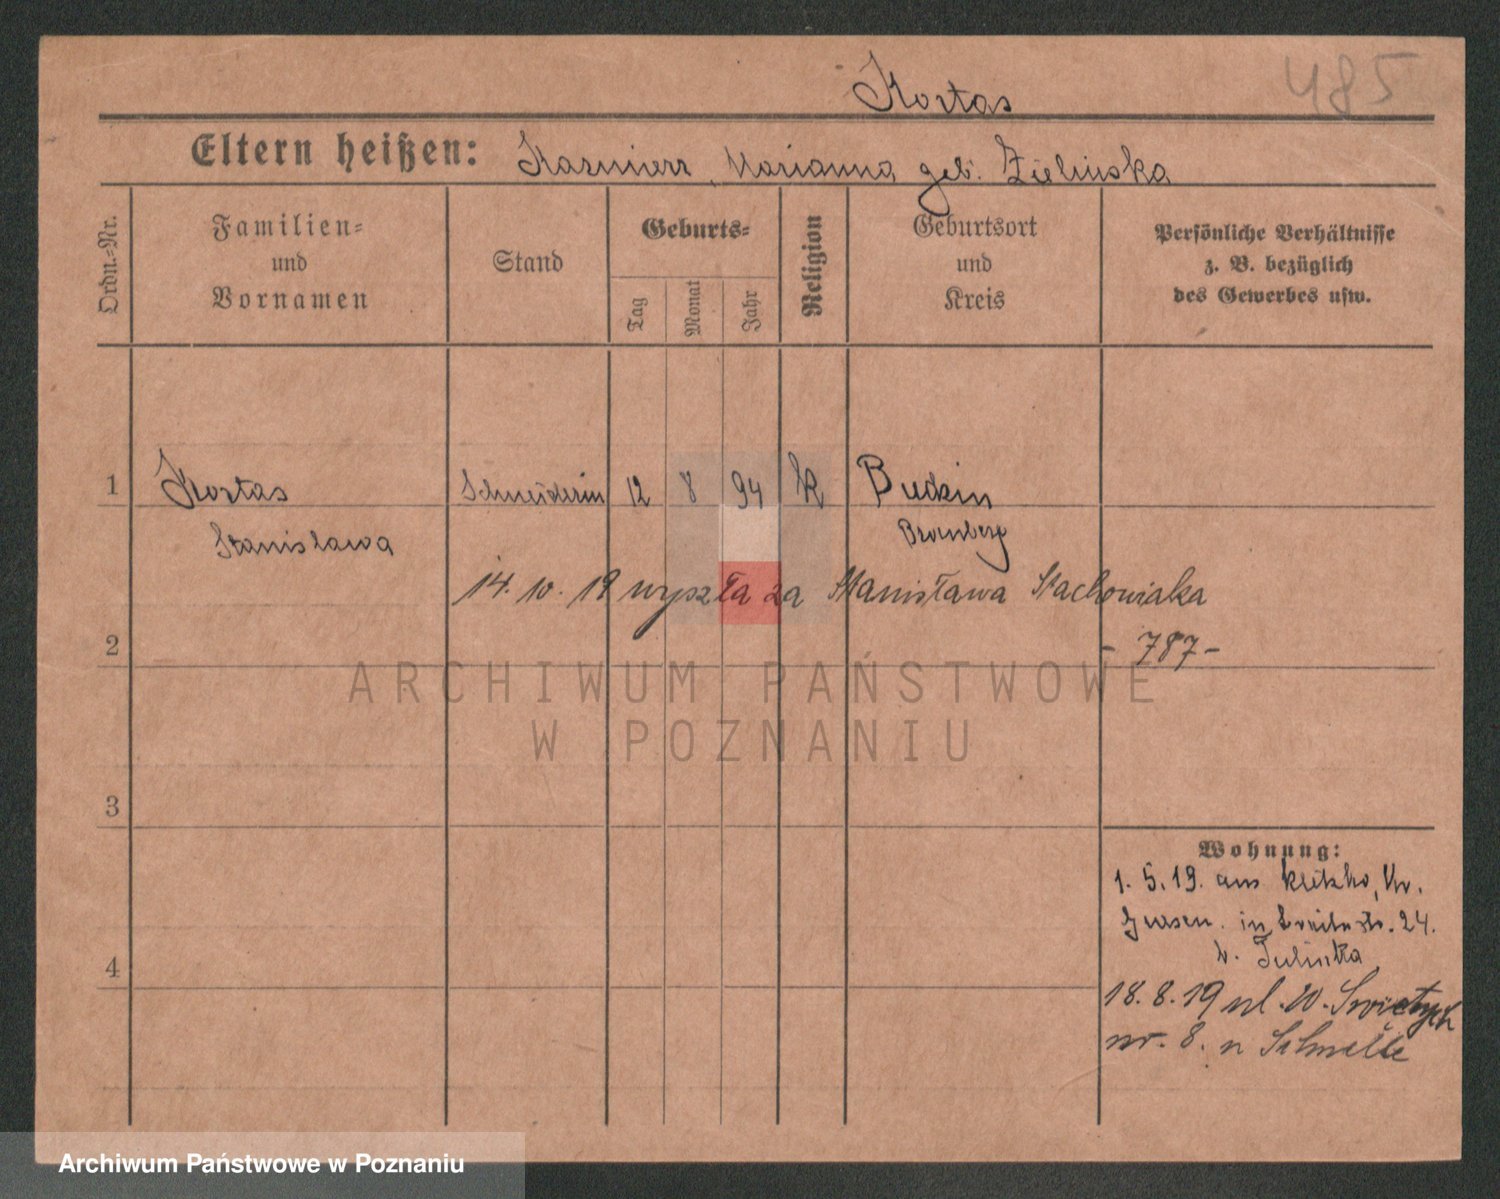 Kortas
485
Eltern heißen: Kazmierz, Marianna geb. Zielinska
Ordn.-Nr.
Familien-
und
Vornamen
Stand
Geburts-
Tag
Monat
Jahr
Religion
Geburtsort
und
Kreis
Persönliche Verhältnisse
z. B. bezüglich
des Gewerbes usw.
1 Kortas Schneiderin 12 8 94 k Buckin
Stanislawa Bromberg
14. 10. 19 wyszła za Stanisława Stachowiaka
2 - 787 -
ARCHIWUM PAŃSTWOWE
W POZNANIU
3
Wohnung:
1. 5. 19. aus Kletzko, Kr.
Gnesen. in Breitestr. 24.
b.
4
18. 8. 19 ul. W. Świętych
nr. 8. u
Archiwum Państwowe w Poznaniu